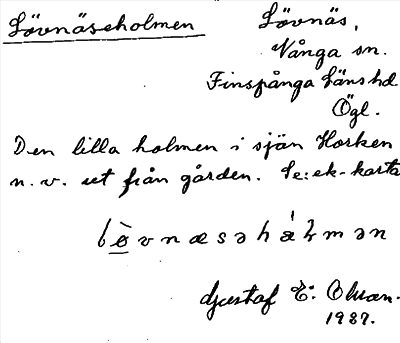 Lövnäseholmen
Lövnäs,
Vånga sn.
Finspånga läns hd
Ögl.
Den lilla holmen i sjön Horken
n. v. ut från gården. Se: ek-karta
Gustaf E:
1937.